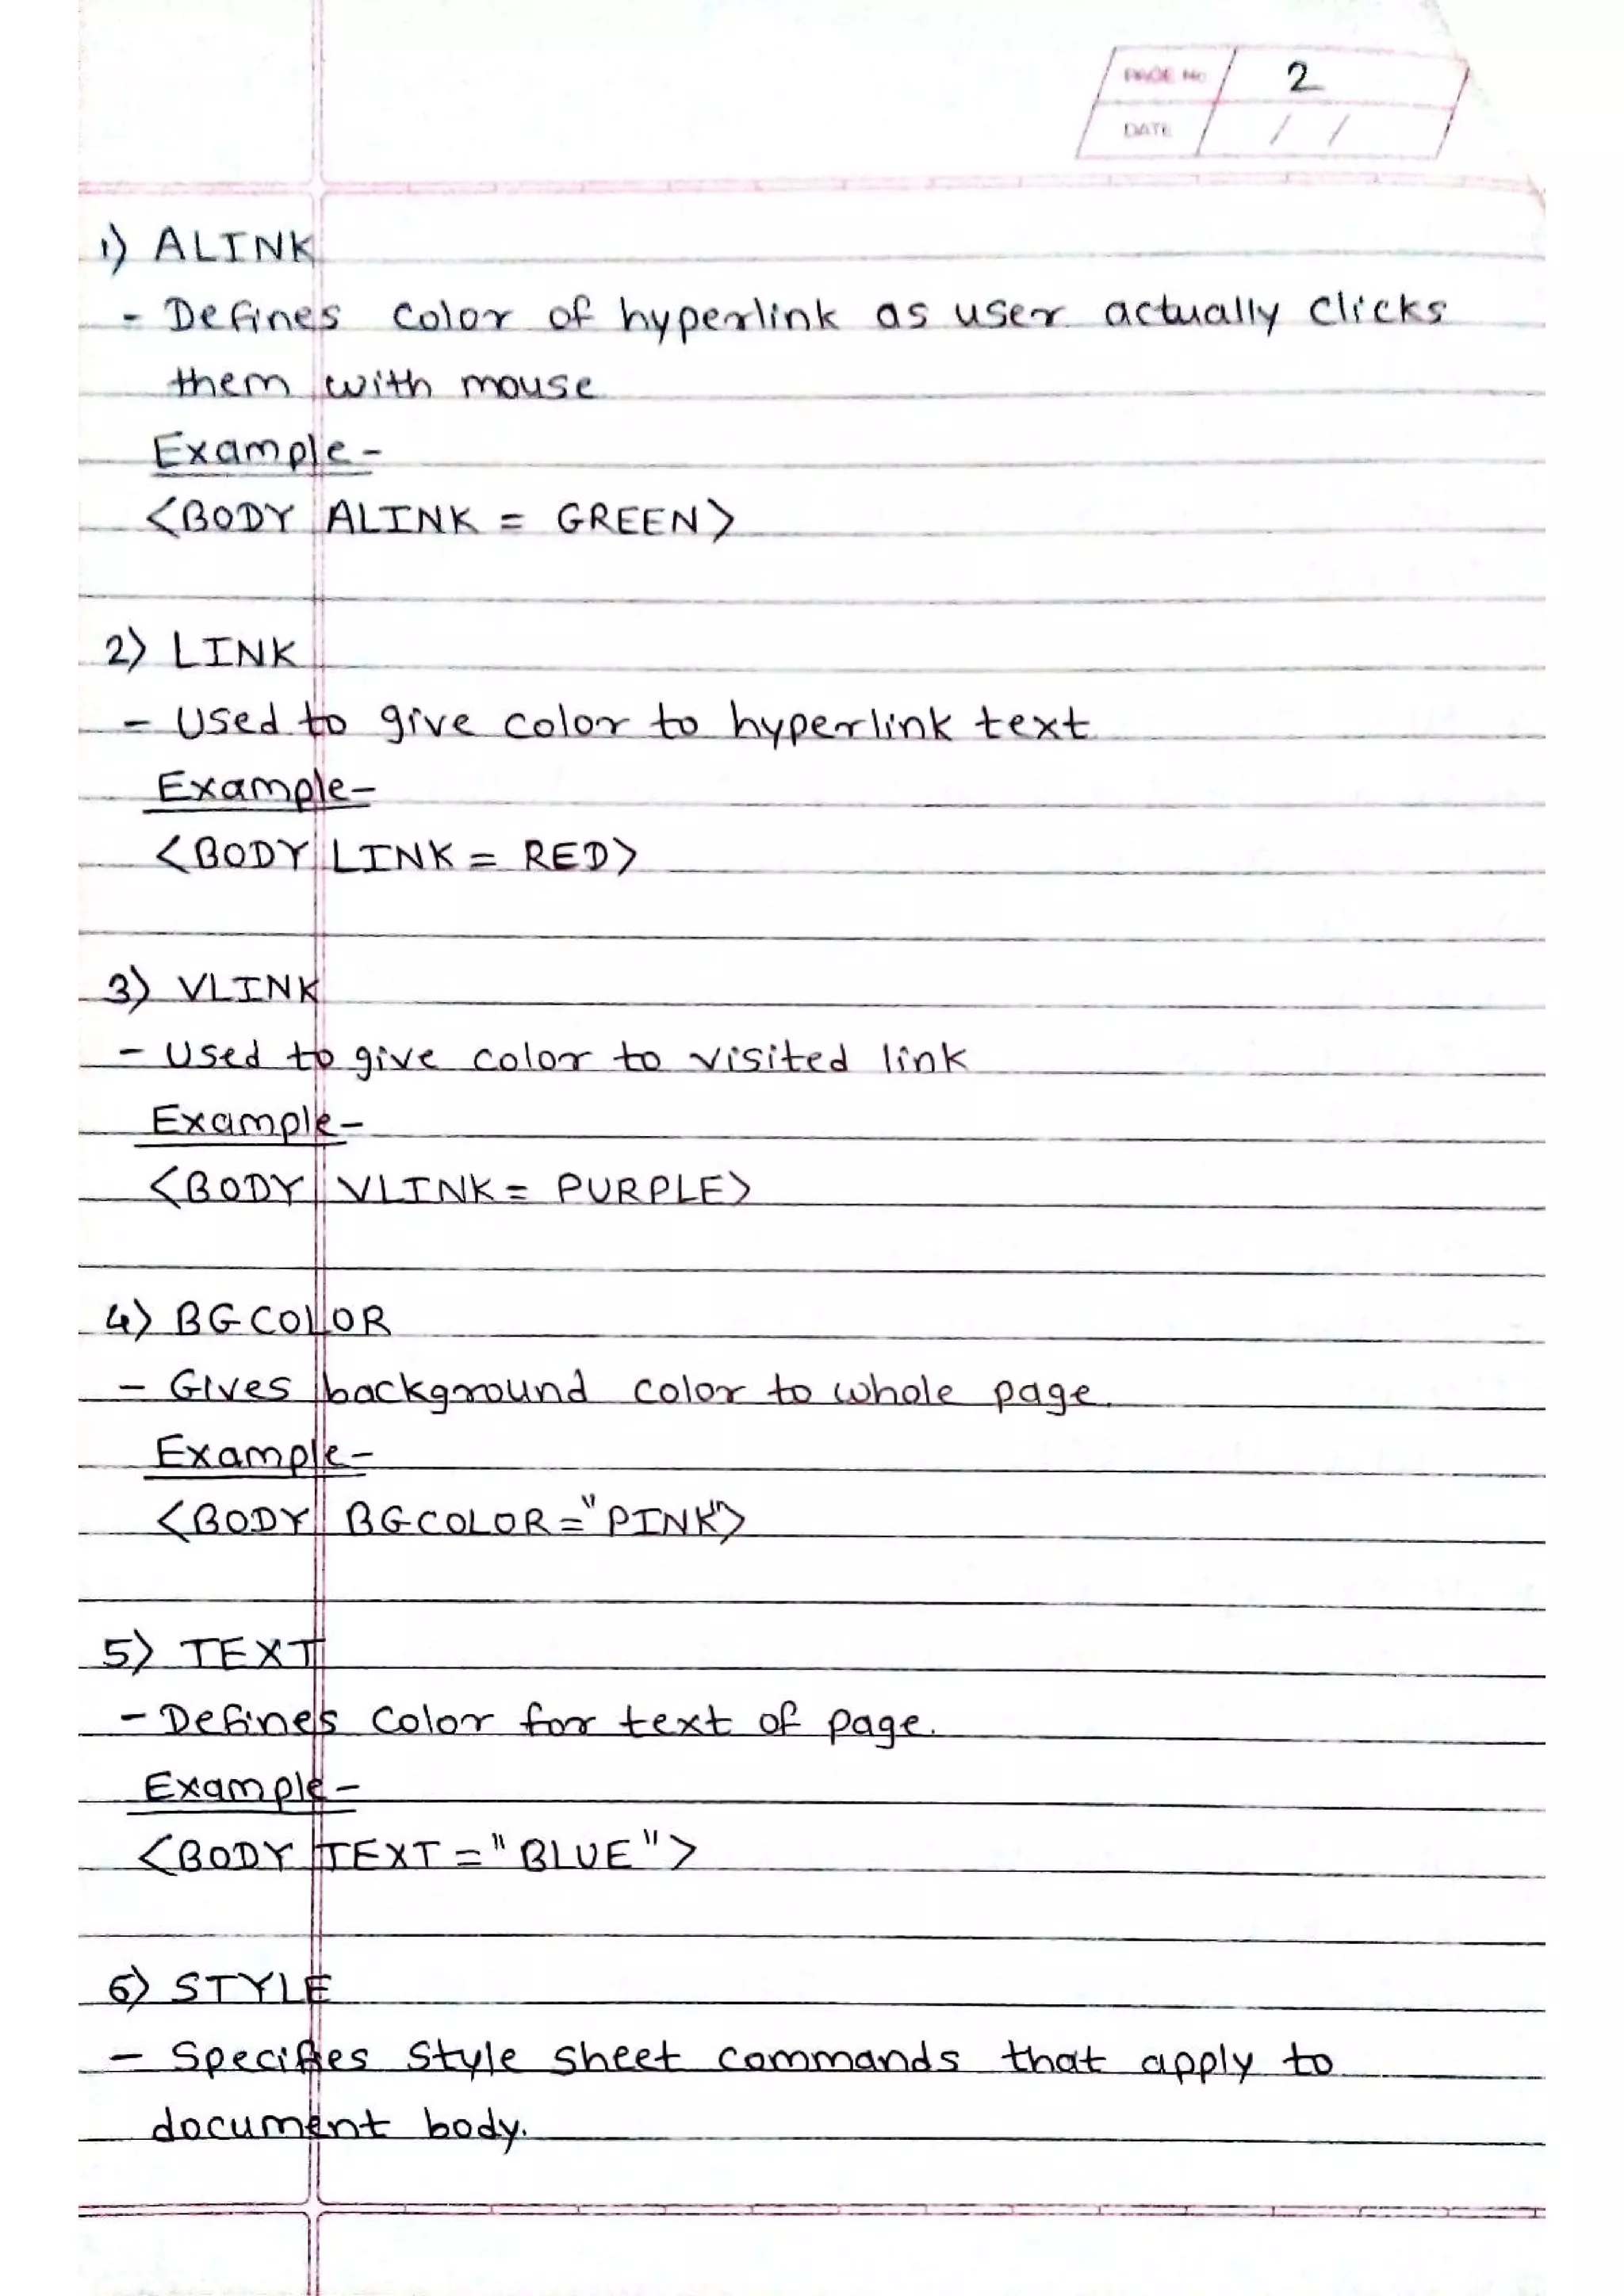 PAGE No 2
DATE / /
1) ALINK
- Defines color of hyperlink as user actually clicks
them with mouse
Example -
<BODY ALINK = GREEN>
2) LINK
- Used to give color to hyperlink text
Example-
<BODY LINK = RED>
3) VLINK
- Used to give color to visited link
Example-
<BODY VLINK = PURPLE>
4) BGCOLOR
- Gives background color to whole page.
Example-
<BODY BGCOLOR="PINK">
5) TEXT
- Defines color for text of page.
Example -
<BODY TEXT = "BLUE">
6) STYLE
- Specifies Style sheet commands that apply to
document body.